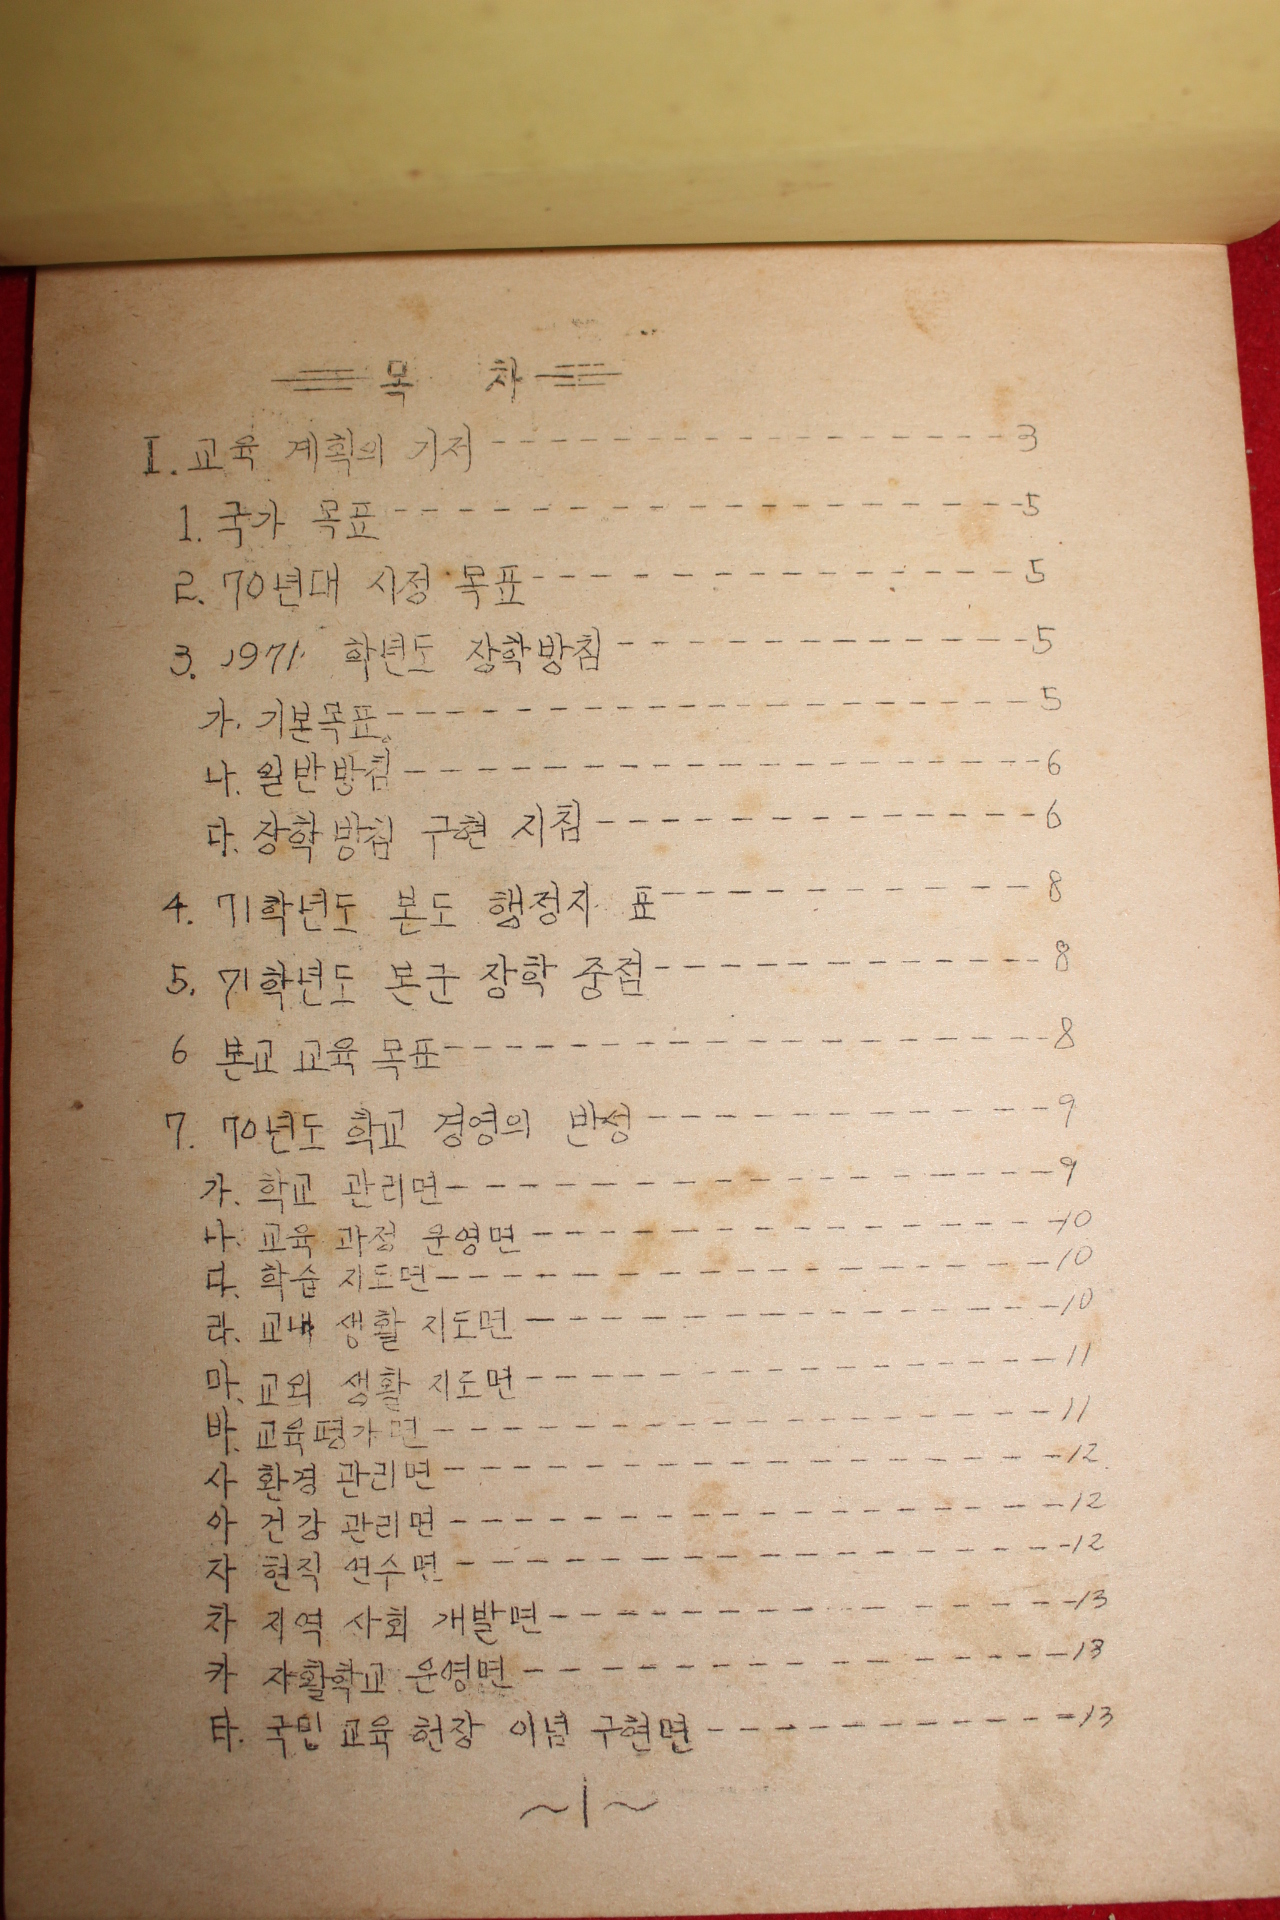 목 차
I. 교육 계획의 기저 3
1. 국가 목표 5
2. 70년대 시정 목표 5
3. 1971 학년도 장학방침 5
가. 기본목표 5
나. 일반방침 6
다. 장학방침 구현 지침 6
4. 71학년도 본도 행정지 표 8
5. 71학년도 본군 장학 중점 8
6 본교 교육 목표 8
7. 70년도 학교 경영의 반성 9
가. 학교 관리면 9
나. 교육 과정 운영면 10
다. 학습 지도면 10
라. 교내 생활 지도면 10
마. 교외 생활 지도면 11
바. 교육평가면 11
사 환경 관리면 12
아 건강 관리면 12
자 현직 연수면 12
차 지역 사회 개발면 13
카 자활학교 운영면 13
타. 국민 교육 헌장 이념 구현면 13
~1~